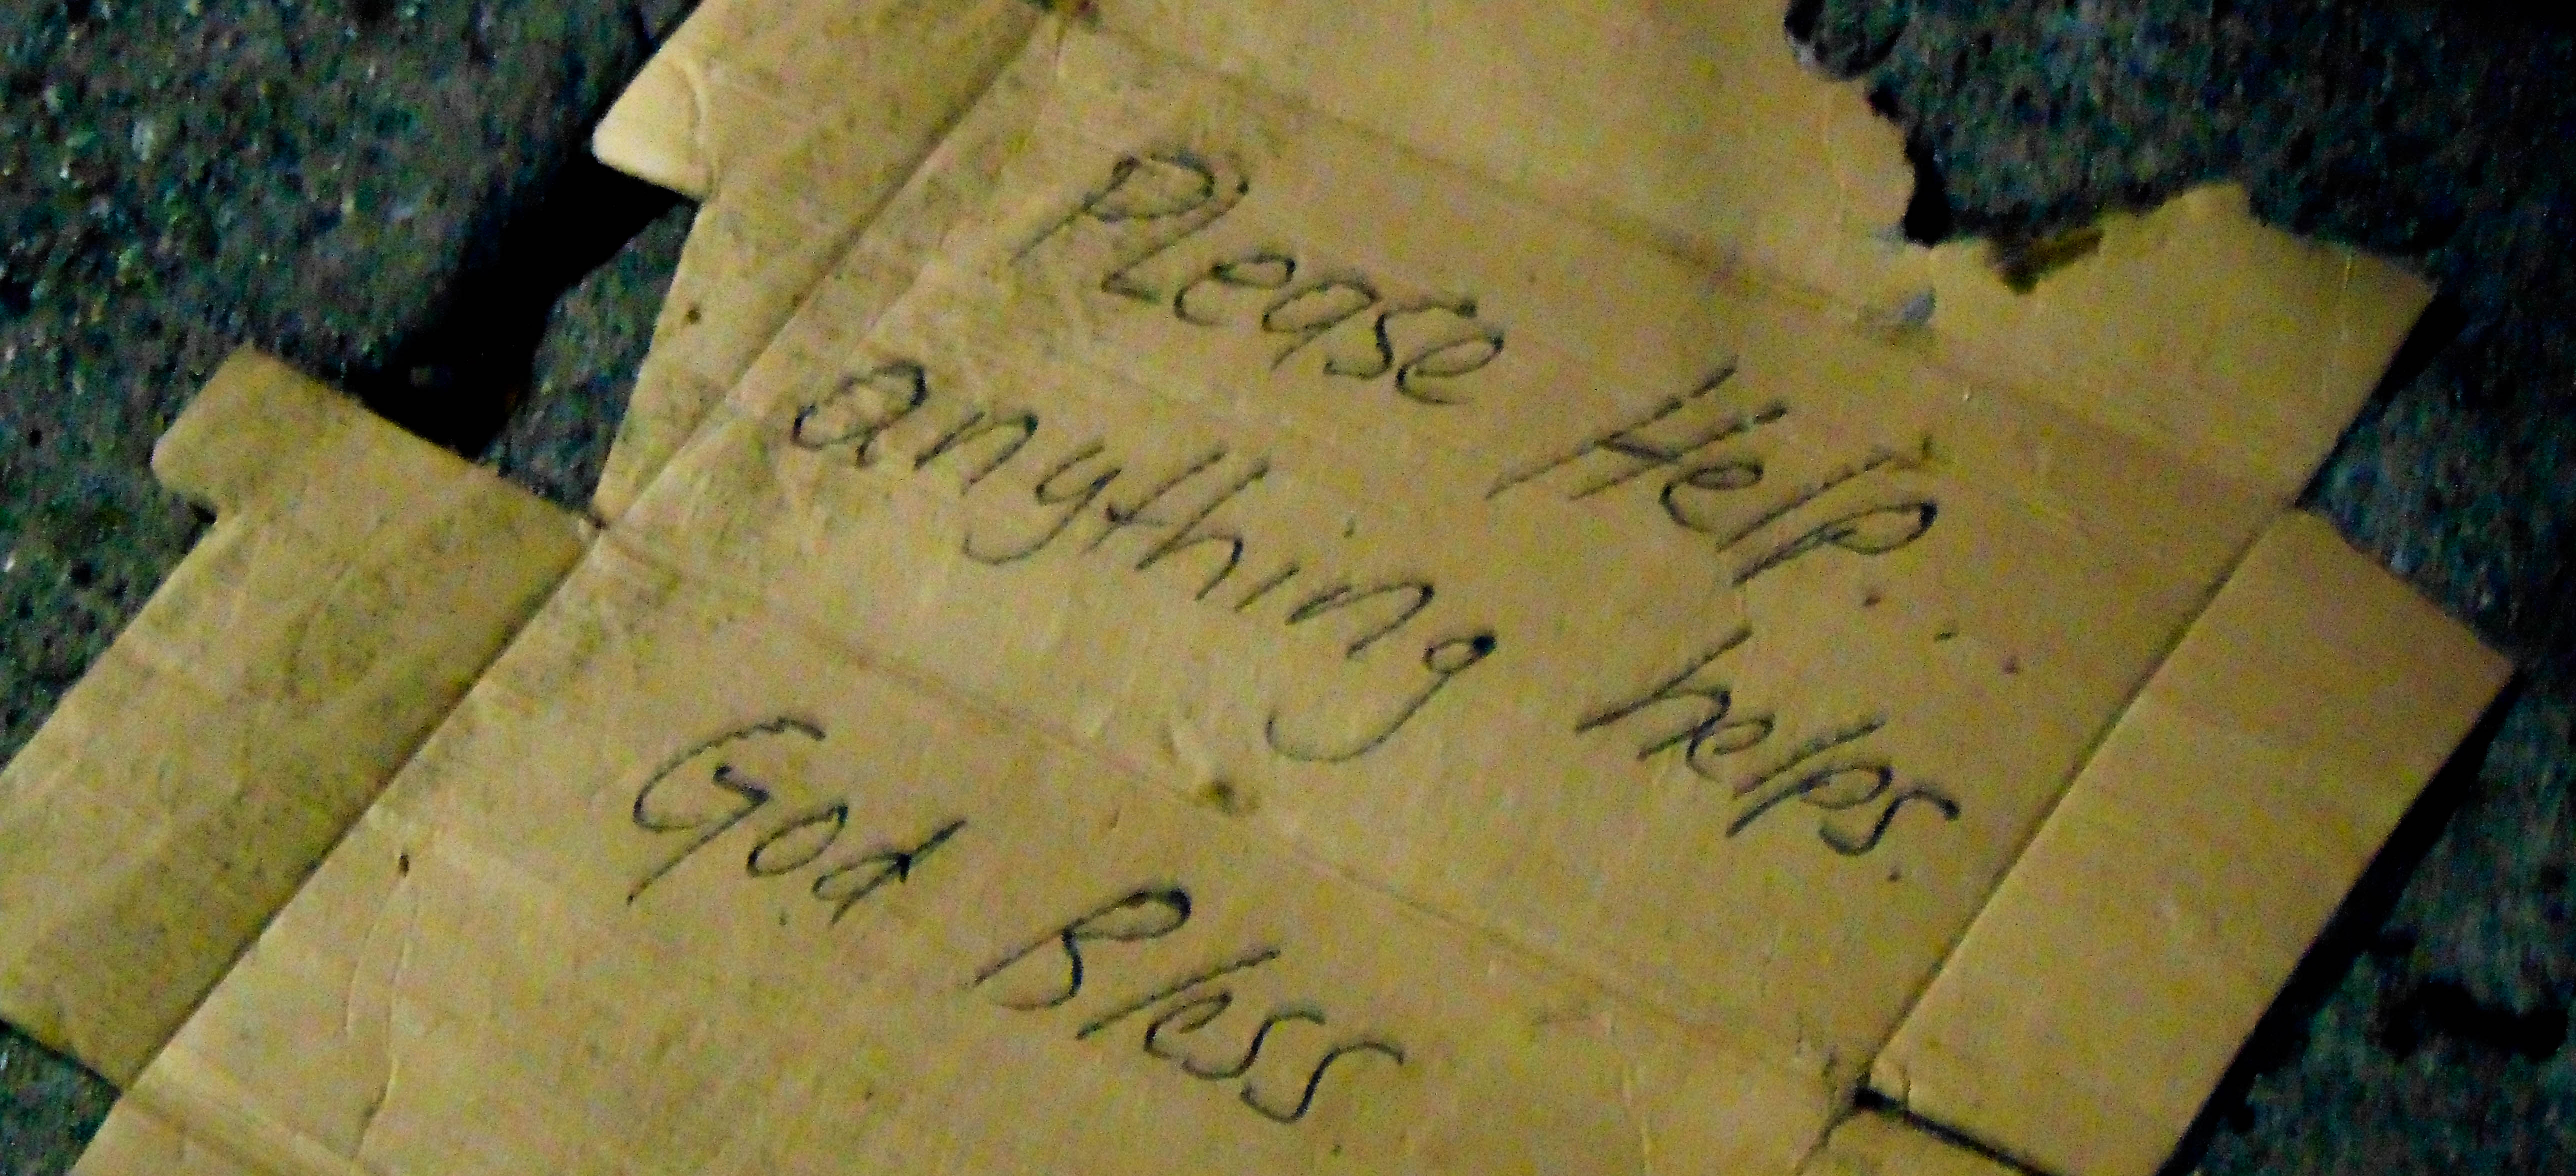 Please Help...
anything helps.
God Bless